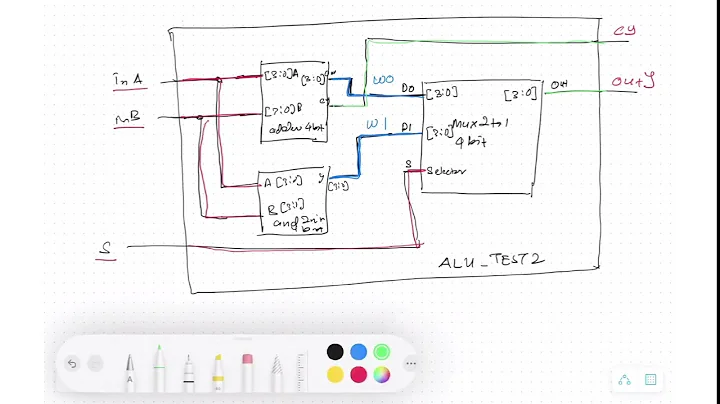 CY
InA
[3:0]A
[3:0]
W00
D0
[3:0]
[3:0]
OUT
OUTY
INB
[3:0]B
cy
adder 4bit
W1
D1
[3:0]
Mux 2to1
4 bit
A [3:0]
y
[3:0]
S
Selector
B [3:0]
and 2 in
S
ALU_TEST2
A